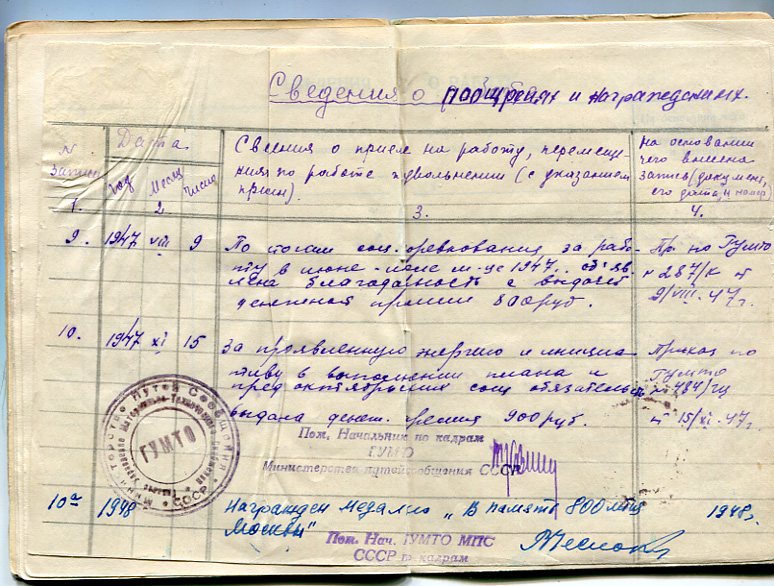 Сведения о поощрениях и награждениях.
N записи
Дата
Год
Месяц
Число
Сведения о приеме на работу, перемеще-
ниях по работе и увольнении (с указанием
причин).
На основании
чего внесена
запись (документ,
его дата, и номер)
1.
2
3.
4.
9. 1947 VIII 9 По итогам соц. соревнования за рабо-
ту в июне - июле м-це 1947.. объяв-
лена благодарность с выдачей
денежной премии 800 руб.
Пр. по ГУМТО
N 287/к от
9/VIII-47 г.
10. 1947 XI 15 За проявленную энергию и инициа-
тиву в выполнении плана и
предоктябрьских соц. обязательств
выдана денеж. премия 900 руб.
Приказ по
ГУМТО
N 484/гц
от 15/XI-47г.
Министерство Путей Сообщения СССР
Главное Управление Материально-Технического Снабжения
ГУМТО
Пом. Начальника по кадрам
ГУМТО
Министерства путей сообщения СССР
10а 1948 Награжден медалью „В память 800 летия
Москвы"
1948г.
Пом. Нач. ГУМТО МПС
СССР по кадрам